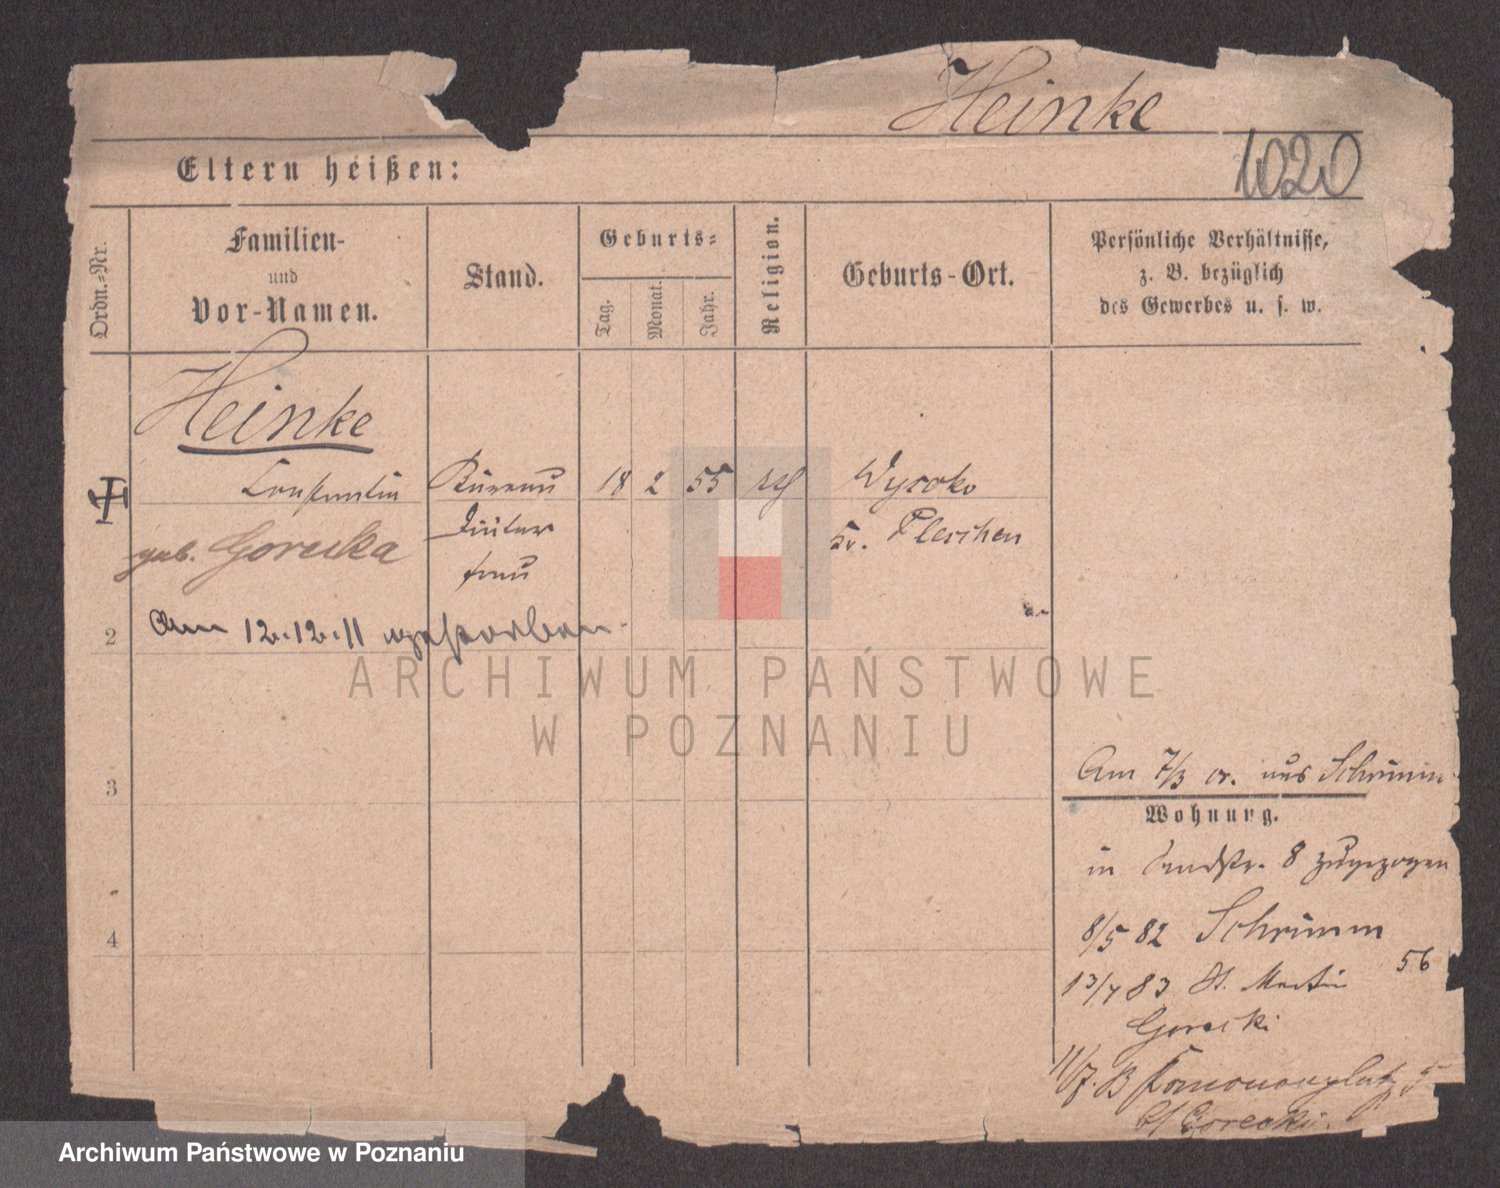 Heinke
1020
Eltern heißen:
Ordn.-Nr.
Familien-
und
Vor-Namen.
Stand.
Geburts-
Tag.
Monat.
Jahr.
Religion.
Geburts-Ort.
Persönliche Verhältnisse,
z. B. bezüglich
des Gewerbes u. s. w.
Heinke
Constantia
Büreau
18 2 55
Wysoko
geb. Gorecka
frau
Kr. Pleschen
2
Am 12.12.11 gestorben.
ARCHIWUM PAŃSTWOWE
W POZNANIU
3
Am 7/3 cr. aus Schrimm
Wohnung.
in Sandstr. 8 zugezogen
4
8/5 82 Schrimm
13/7 83 St. Martin 56
Gorecki
b/ Gorecki.
Archiwum Państwowe w Poznaniu